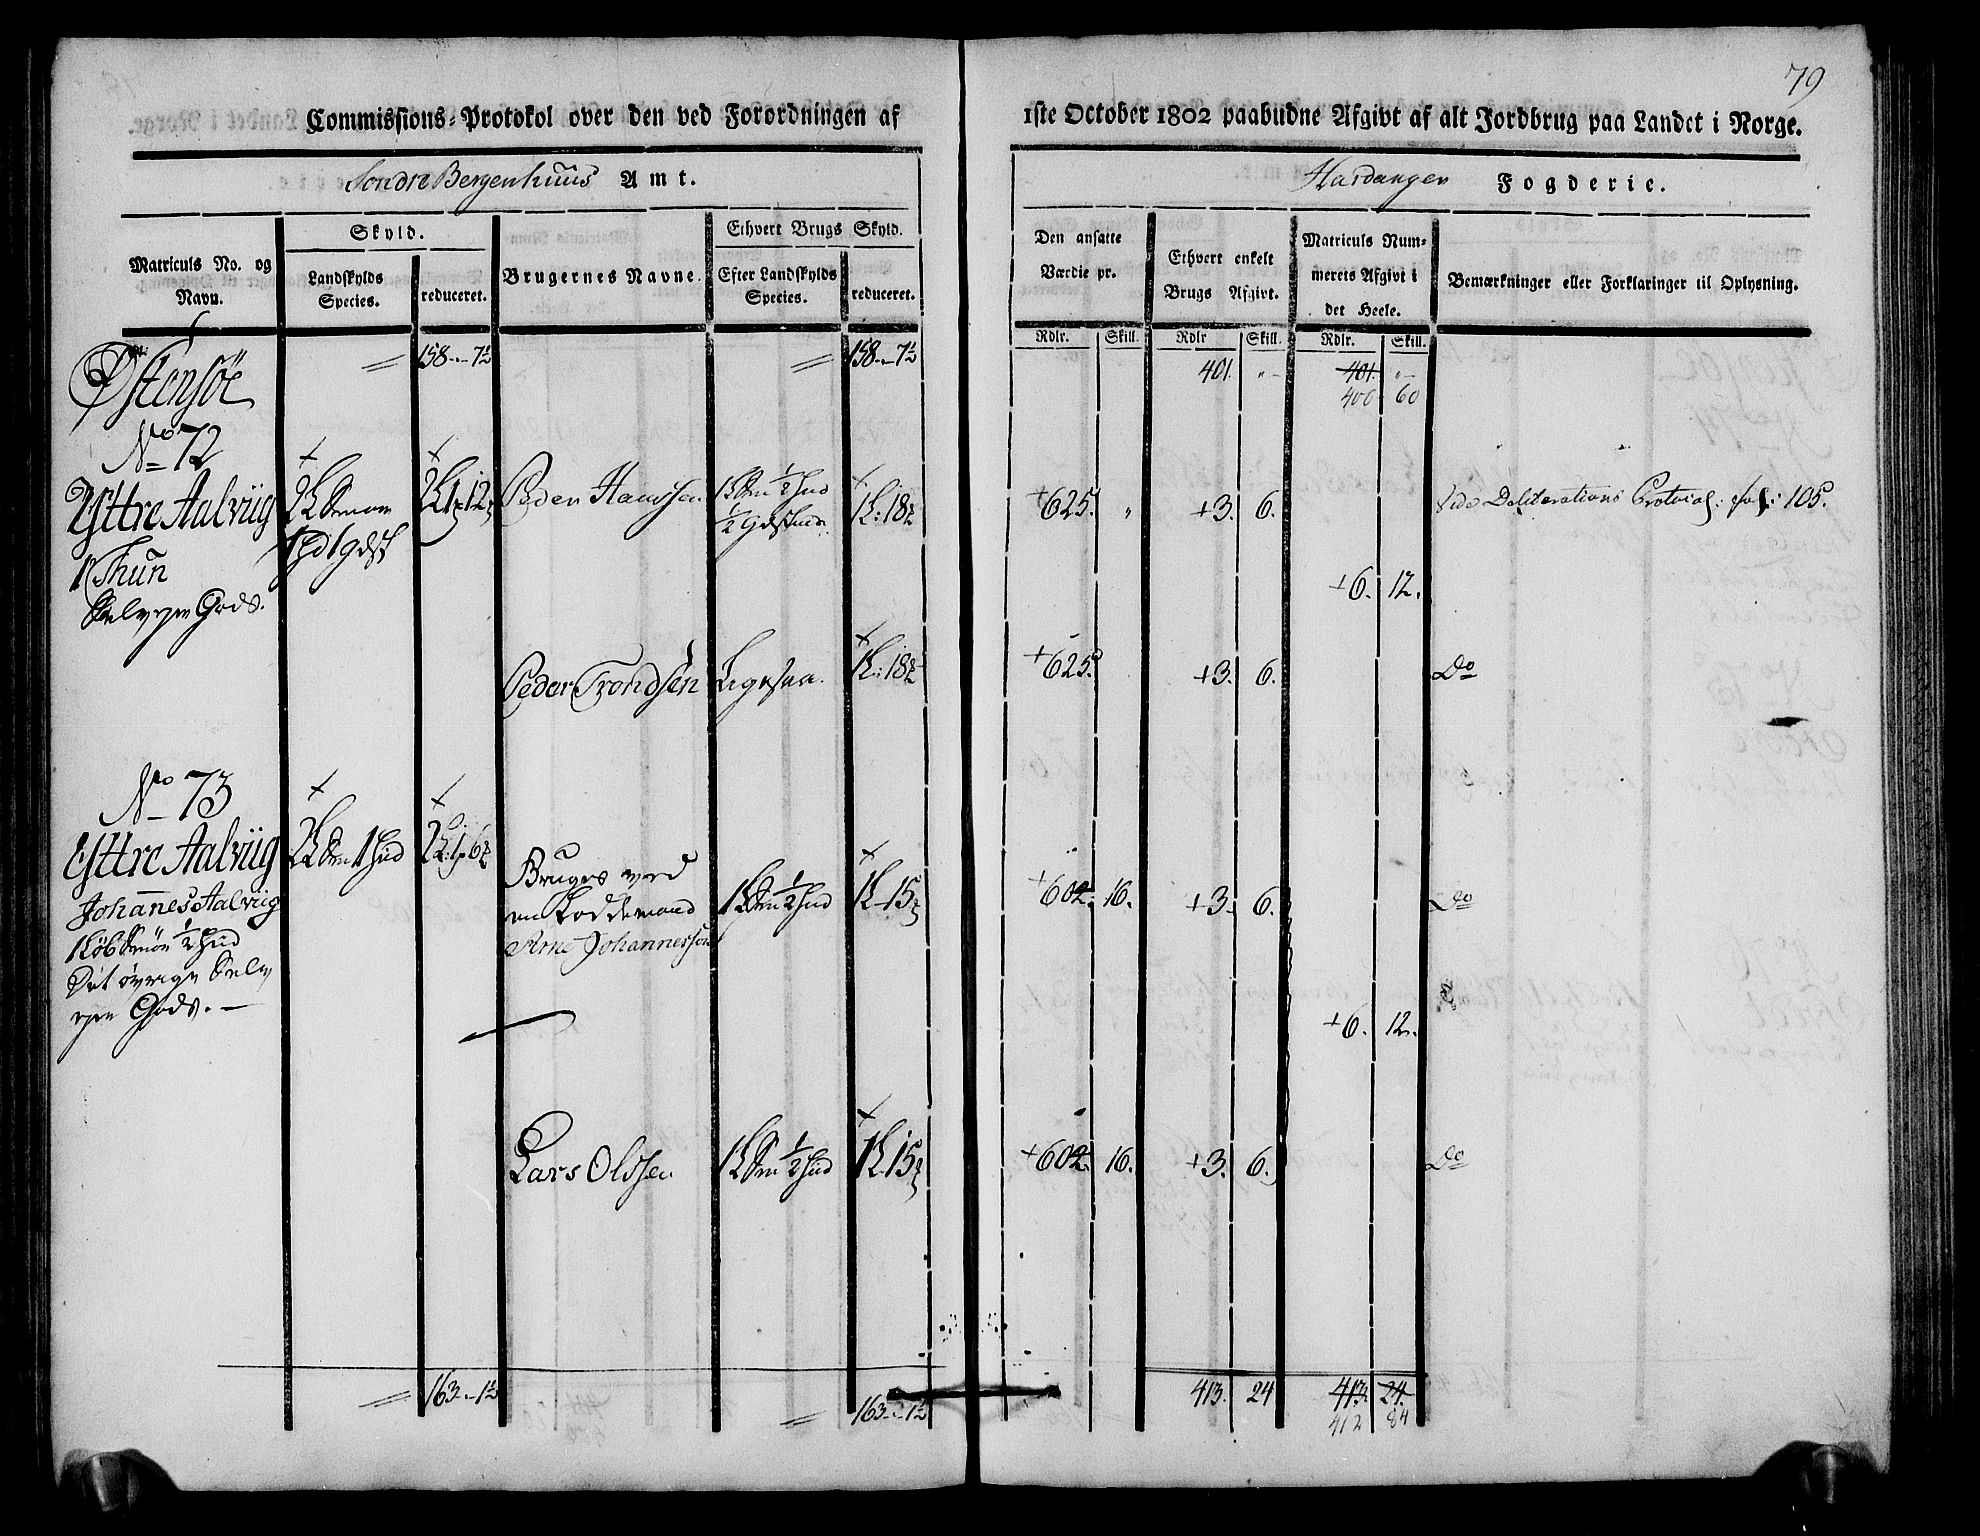 79
Commissions-Protokol over den ved Forordningen af 1ste October 1802 paabudne Afgivt af alt Jordbrug paa Landet i Norge.
Søndre Bergenhuus Amt.
Hardanger Fogderie.
Matriculs No. og Navn.
Skyld.
Landskylds Species.
reduceret.
Brugernes Navne.
Ethvert Brugs Skyld.
Efter Landskylds Species.
reduceret.
Den ansatte Værdie pr.
Ethvert enkelt Brugs Afgivt.
Matriculs Nummerets Afgivt i det Heele.
Bemærkninger eller Forklaringer til Oplysning.
Rdlr. Skill. Rdlr Skill. Rdlr. Skill.
Østensöe
158 - 7½
158 - 7½
401. "
401. "
400 60
No 72
Yttre Aalviig
1 Thun
Selveyer Gods.
Peder Hanssen
1 18
+625. "
+3. 6.
Vide Deliberations Protocol: fol: 105.
+6. 12.
Peder Trondsen
Ligesaa
1 18
+625.
+3. 6.
Do
No 73
Yttre Aalviig
Johannes Aalviig
1 Løb Smør ½ Hud
Det øvrige Selv
eyer Gods. -
2 Smr 1 Hud
Bruges ved
en Arne Johannessen
1 Smr ½ Hud
1 15
+602. 16.
+3. 6.
Do
+6. 12.
Lars Olssen
1 Smr ½ Hud
1 15
+602. 16.
+3. 6.
Do
163 - 1½
163 - 1½
413. 24
413. 24.
412 84